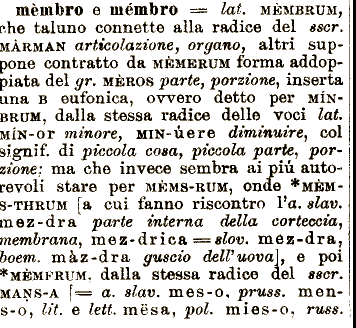 mèmbro e mémbro = lat. MÈMBRUM,
che taluno connette alla radice del sscr.
MÀRMAN articolazione, organo, altri sup-
pone contratto da MÈMERUM forma addop-
piata del gr. MÈROS parte, porzione, inserta
una B eufonica, ovvero detto per MÍN-
BRUM, dalla stessa radice delle voci lat.
MÍN-or minore, MIN-ùere diminuire, col
signif. di piccola cosa, piccola parte, por-
zione: ma che invece sembra ai piú auto-
revoli stare per MÈMS-RUM, onde *MÈM-
S-THRUM [a cui fanno riscontro l'a. slav.
mez-dra parte interna della corteccia,
membrana, mez-drica = slov. mez-dra,
boem. màz-dra guscio dell'uova], e poi
*MÈMFRUM, dalla stessa radice del sscr.
MANS-A [= a. slav. mes-o, pruss. men-
s-o, lit. e lett. mësa, pol. mies-o, russ.